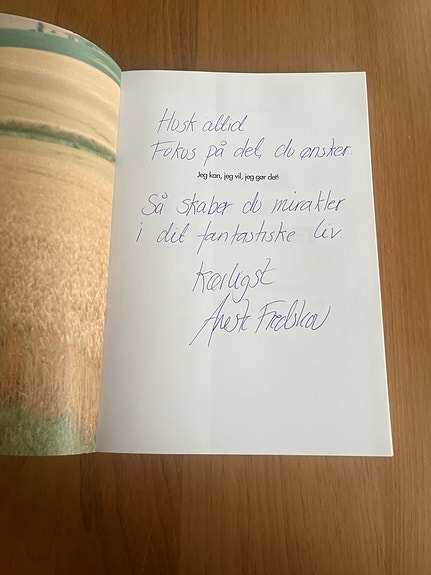 Husk altid
Fokus på det, du ønsker.
Jeg kan, jeg vil, jeg gør det!
Så skaber du mirakler
i dit fantastiske liv
Kærligst
Fredskov